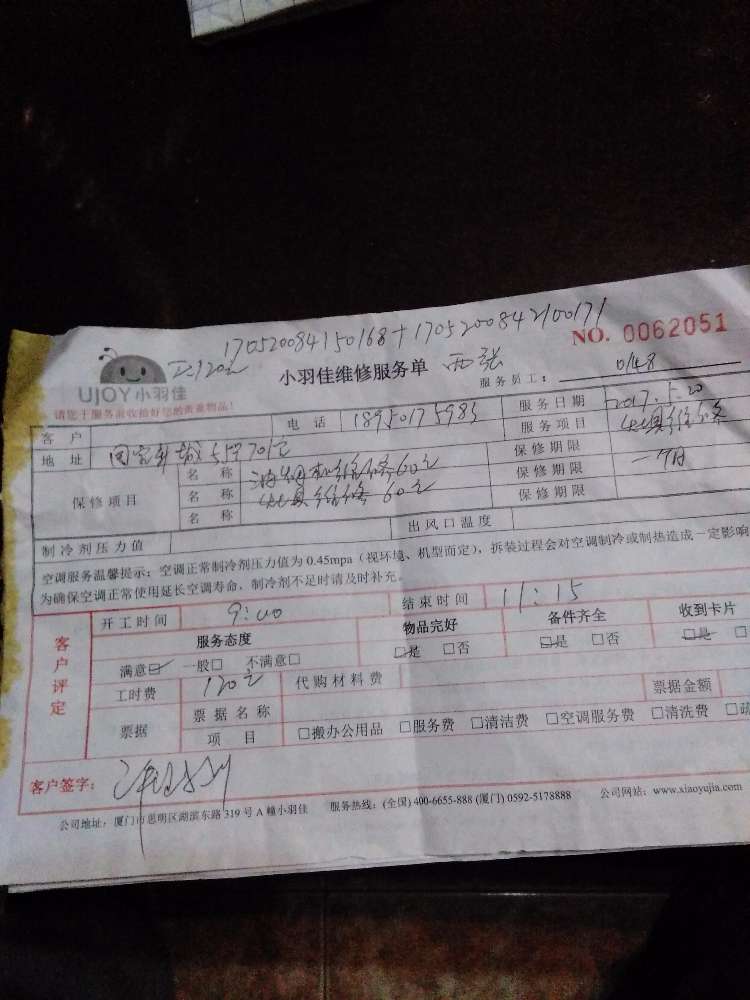 170520084150168+1705200842100171
NO. 0062051
120元
小羽佳维修服务单 两张
UJOY小羽佳
服务员工： 0148
请您于服务前收拾好您的贵重物品！
客 户 电 话 18950175983 服务日期 2017.5.20
地 址 701室 服务项目 灶具维修
保修项目 名 称 油烟机维修60元 保修期限 一个月
名 称 灶具维修 60元 保修期限
名 称 保修期限
制冷剂压力值 出风口温度
空调服务温馨提示：空调正常制冷剂压力值为 0.45mpa（视环境、机型而定），拆装过程会对空调制冷或制热造成一定影响
为确保空调正常使用延长空调寿命，制冷剂不足时请及时补充。
客户评定 开工时间 9:00 结束时间 11:15
服务态度 物品完好 备件齐全 收到卡片
满意☑ 一般□ 不满意□ ☑是 □否 ☑是 □否 ☑是 □
工时费 120元 代购材料费
票据 票据名称 票据金额
项 目 □搬办公用品 □服务费 □清洁费 □空调服务费 □清洗费 □疏
客户签字：
公司地址：厦门市思明区湖滨东路 319 号 A 幢小羽佳 服务热线：(全国) 400-6655-888 (厦门) 0592-5178888 公司网站：www.xiaoyujia.com